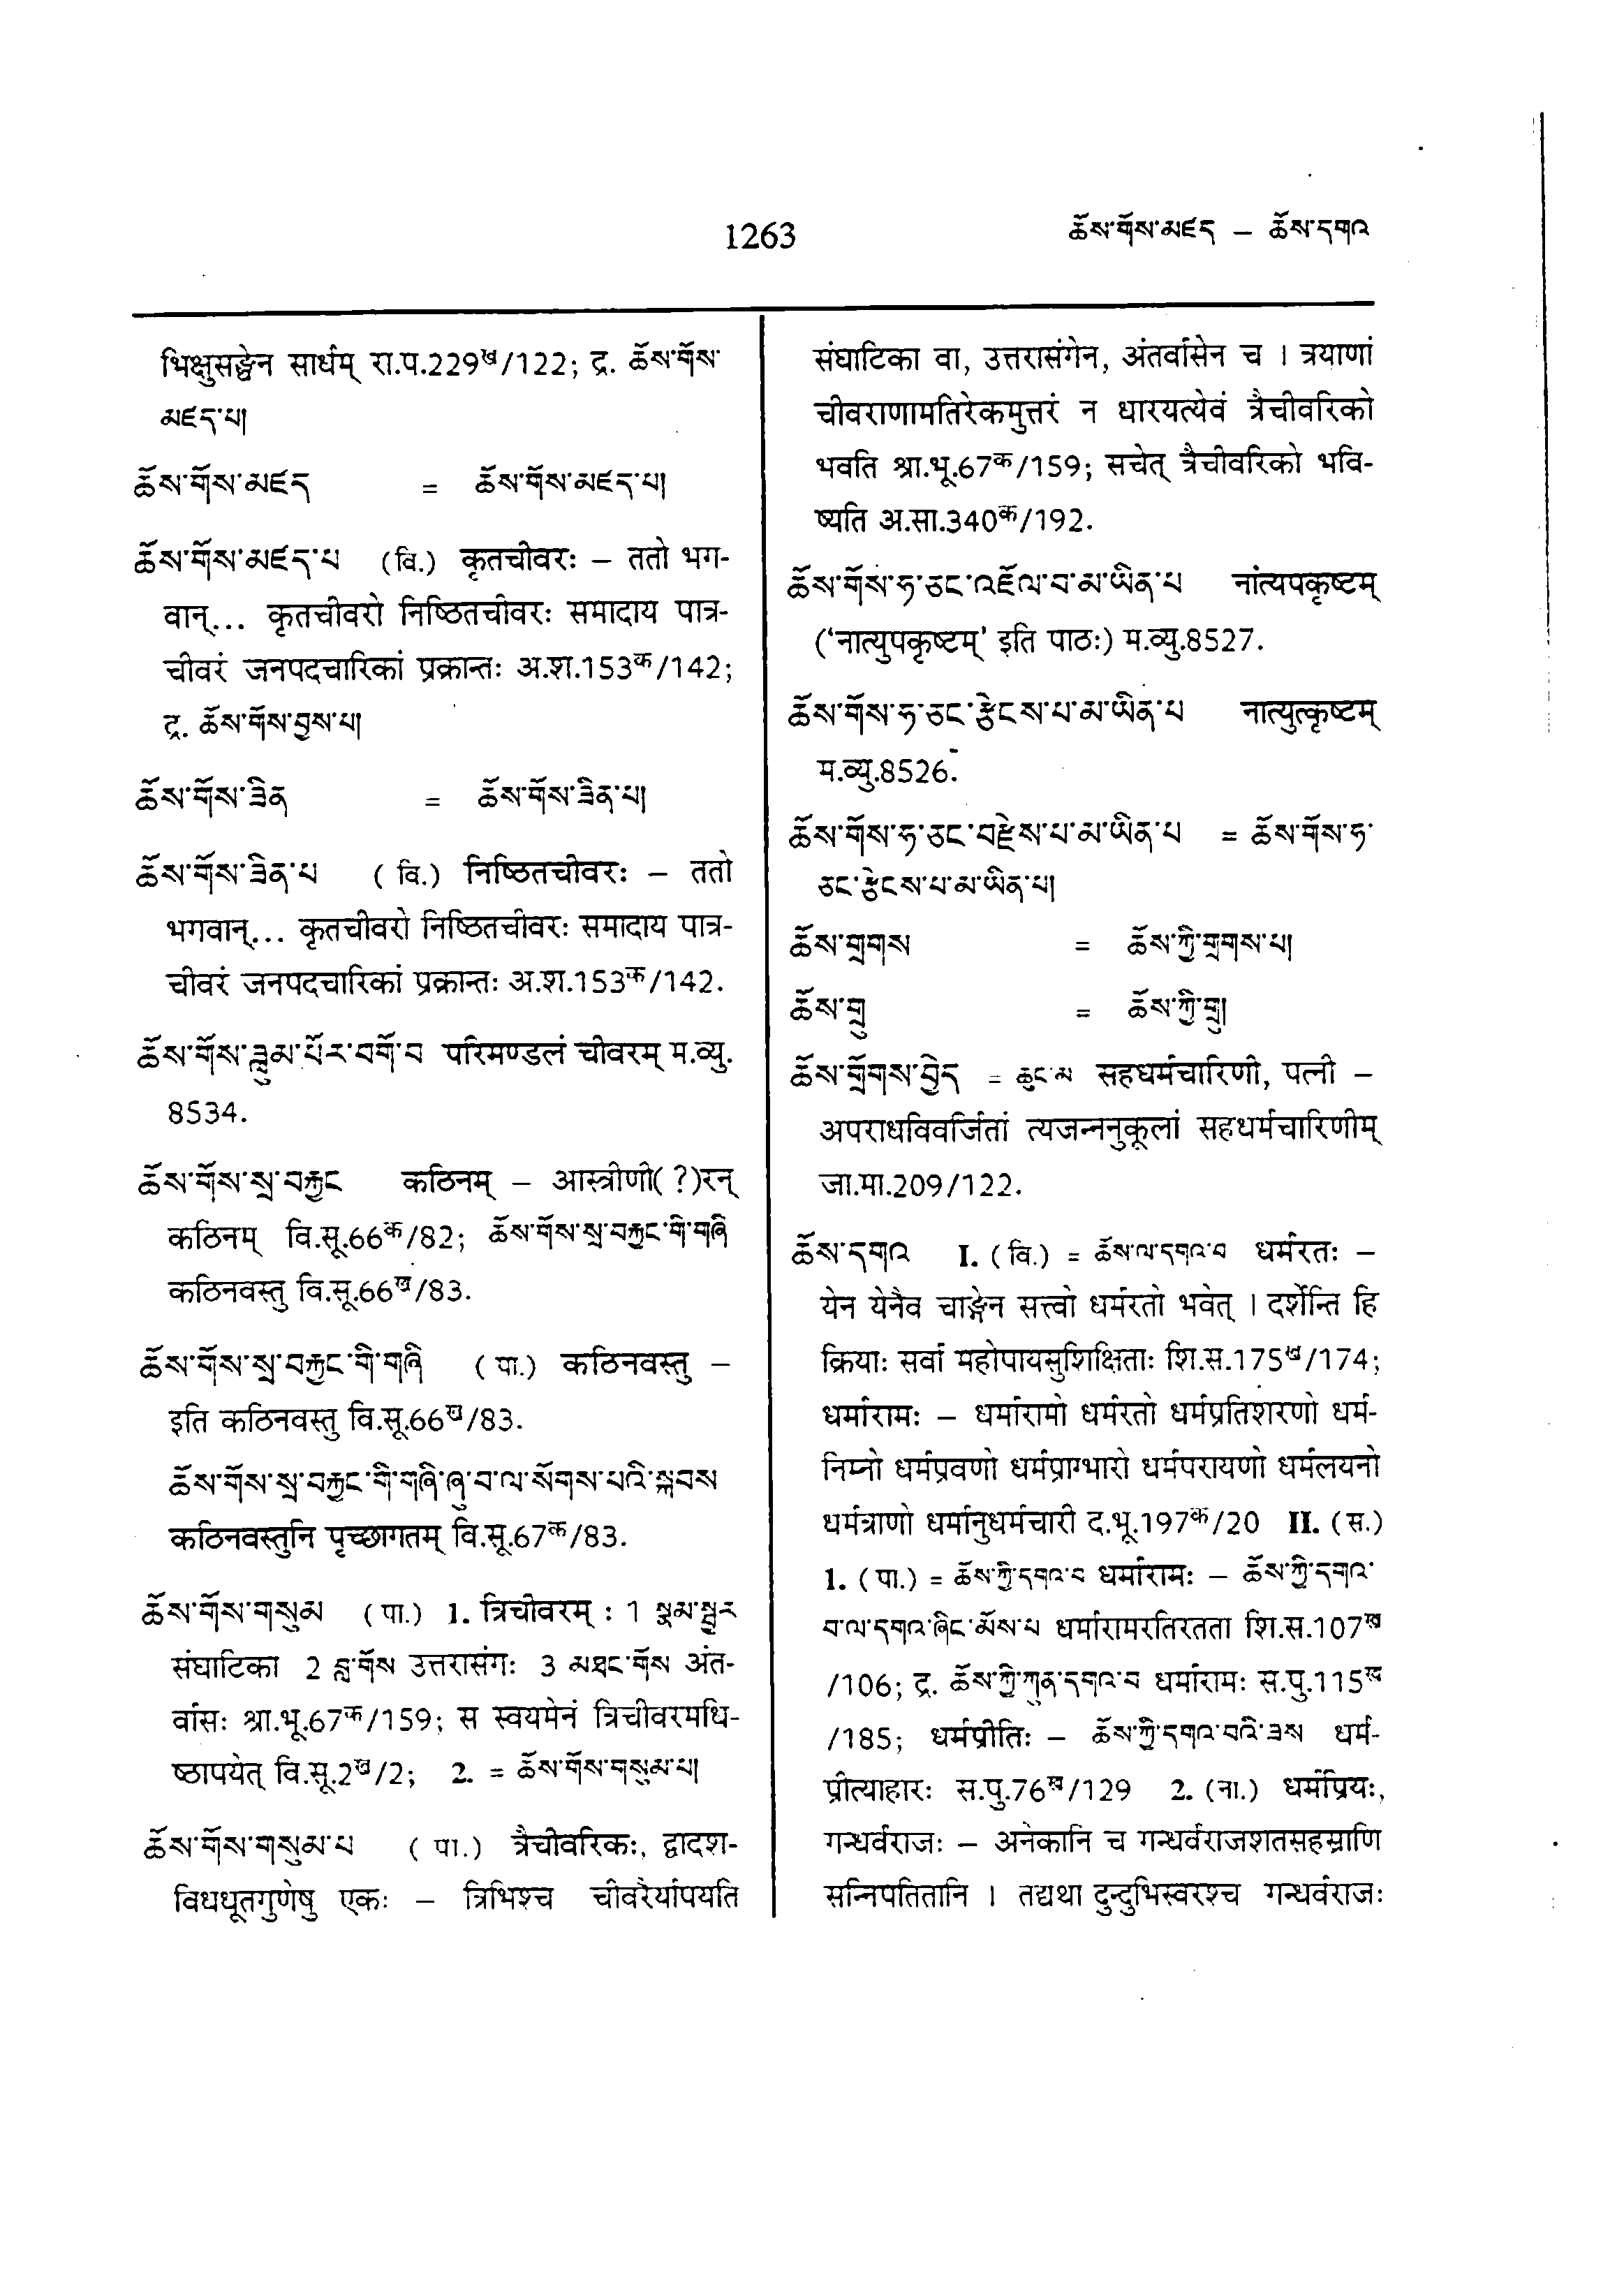 1263
ཆོས་གོས་མཛད – ཆོས་དགའ
भिक्षुसङ्घेन सार्धम् रा.प.229ख/122; द्र. ཆོས་གོས་
མཛད་པ།
ཆོས་གོས་མཛད = ཆོས་གོས་མཛད་པ།
ཆོས་གོས་མཛད་པ (वि.) कृतचीवरः – ततो भग-
वान्... कृतचीवरो निष्ठितचीवरः समादाय पात्र-
चीवरं जनपदचारिकां प्रक्रान्तः अ.श.153क/142;
द्र. ཆོས་གོས་བྱས་པ།
ཆོས་གོས་ཟིན = ཆོས་གོས་ཟིན་པ།
ཆོས་གོས་ཟིན་པ (वि.) निष्ठितचीवरः – ततो
भगवान्... कृतचीवरो निष्ठितचीवरः समादाय पात्र-
चीवरं जनपदचारिकां प्रक्रान्तः अ.श.153क/142.
ཆོས་གོས་ཟླུམ་པོར་བགོ་བ परिमण्डलं चीवरम् म.व्यु.
8534.
ཆོས་གོས་སྲ་བརྐྱང कठिनम् – आस्त्रीणी(?)रन्
कठिनम् वि.सू.66क/82; ཆོས་གོས་སྲ་བརྐྱང་གི་གཞི
कठिनवस्तु वि.सू.66ख/83.
ཆོས་གོས་སྲ་བརྐྱང་གི་གཞི (पा.) कठिनवस्तु –
इति कठिनवस्तु वि.सू.66ख/83.
ཆོས་གོས་སྲ་བརྐྱང་གི་གཞི་ཞུ་བ་ལ་སོགས་པའི་སྐབས
कठिनवस्तुनि पृच्छागतम् वि.सू.67क/83.
ཆོས་གོས་གསུམ (पा.) 1. त्रिचीवरम् : 1 སྣམ་སྦྱར
संघाटिका 2 བླ་གོས उत्तरासंगः 3 མཐང་གོས अंत-
र्वासः श्रा.भू.67क/159; स स्वयमेनं त्रिचीवरमधि-
ष्ठापयेत् वि.सू.2ख/2; 2. = ཆོས་གོས་གསུམ་པ།
ཆོས་གོས་གསུམ་པ (पा.) त्रैचीवरिकः, द्वादश-
विधधूतगुणेषु एकः – त्रिभिश्च चीवरैर्यापयति
संघाटिका वा, उत्तरासंगेन, अंतर्वासेन च । त्रयाणां
चीवराणामतिरेकमुत्तरं न धारयत्येवं त्रैचीवरिको
भवति श्रा.भू.67क/159; सचेत् त्रैचीवरिको भवि-
ष्यति अ.सा.340क/192.
ཆོས་གོས་ཧ་ཅང་འཛོལ་བ་མ་ཡིན་པ नांत्यपकृष्टम्
(‘नात्युपकृष्टम्’ इति पाठः) म.व्यु.8527.
ཆོས་གོས་ཧ་ཅང་རྩེངས་པ་མ་ཡིན་པ नात्युत्कृष्टम्
म.व्यु.8526.
ཆོས་གོས་ཧ་ཅང་བརྫེས་པ་མ་ཡིན་པ = ཆོས་གོས་ཧ་
ཅང་རྩེངས་པ་མ་ཡིན་པ།
ཆོས་གྲགས = ཆོས་ཀྱི་གྲགས་པ།
ཆོས་གྲུ = ཆོས་ཀྱི་གྲུ།
ཆོས་གྲོགས་བྱེད = ཆུང་མ सहधर्मचारिणी, पत्नी –
अपराधविवर्जितां त्यजन्ननुकूलां सहधर्मचारिणीम्
जा.मा.209/122.
ཆོས་དགའ I. (वि.) = ཆོས་ལ་དགའ་བ धर्मरतः –
येन येनैव चाङ्गेन सत्त्वो धर्मरतो भवेत् । दर्शेन्ति हि
क्रियाः सर्वा महोपायसुशिक्षिताः शि.स.175ख/174;
धर्मारामः – धर्मारामो धर्मरतो धर्मप्रतिशरणो धर्म-
निम्नो धर्मप्रवणो धर्मप्राग्भारो धर्मपरायणो धर्मलयनो
धर्मत्राणो धर्मानुधर्मचारी द.भू.197क/20 II. (स.)
1. (पा.) = ཆོས་ཀྱི་དགའ་བ धर्मारामः – ཆོས་ཀྱི་དགའ་
བ་ལ་དགའ་ཞིང་མོས་པ धर्मारामरतिरतता शि.स.107ख
/106; द्र. ཆོས་ཀྱི་ཀུན་དགའ་བ धर्मारामः स.पु.115ख
/185; धर्मप्रीतिः – ཆོས་ཀྱི་དགའ་བའི་ཟས धर्म-
प्रीत्याहारः स.पु.76ख/129 2. (ना.) धर्मप्रियः,
गन्धर्वराजः – अनेकानि च गन्धर्वराजशतसहस्राणि
सन्निपतितानि । तद्यथा दुन्दुभिस्वरश्च गन्धर्वराजः